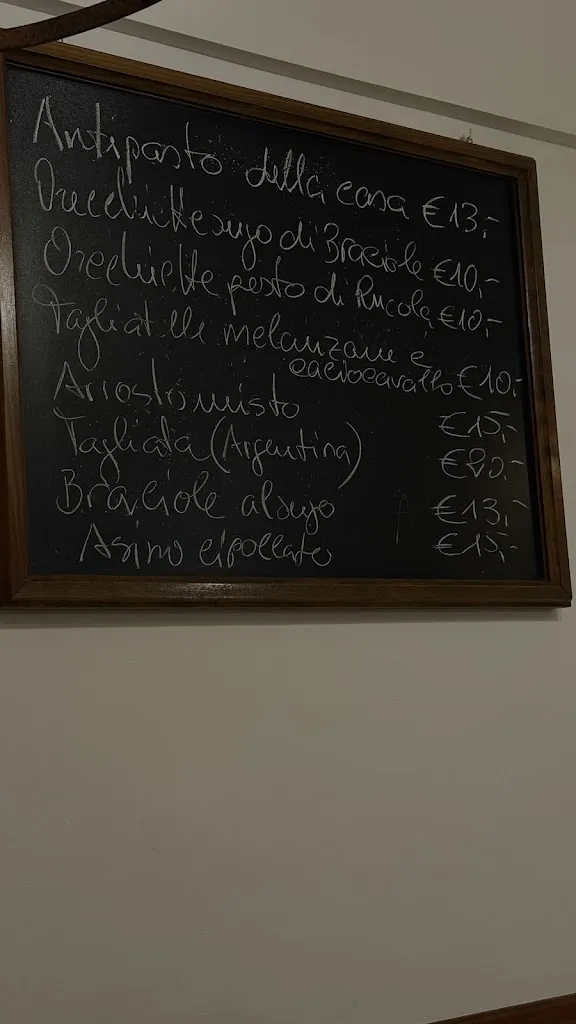 Antipasto della casa €13,-
Orecchiette sugo di Braciole €10,-
Orecchiette pesto di Rucola €10,-
Tagliatelle melanzane e
caciocavallo €10,-
Arrosto misto €15,-
Tagliata (Argentina) €20.-
Braciole al sugo €13,-
Asino cipollato €15,-